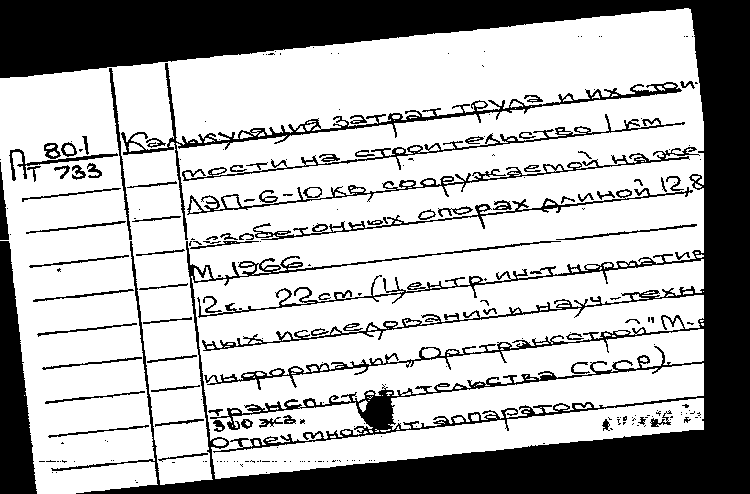 П 80-1
Т 733
Калькуляция затрат труда и их стои-
мости на строительство 1 км
ЛЭП-6-10 кв, сооружаемой на же-
лезобетонных опорах длиной 12,8
М., 1966.
12 с., 22 см. (Центр. ин-т норматив-
ных исследований и науч.-техн.
информации „Оргтрансстрой" М-в
трансп. строительства СССР).
300 экз.
Отпеч. множит. аппаратом.